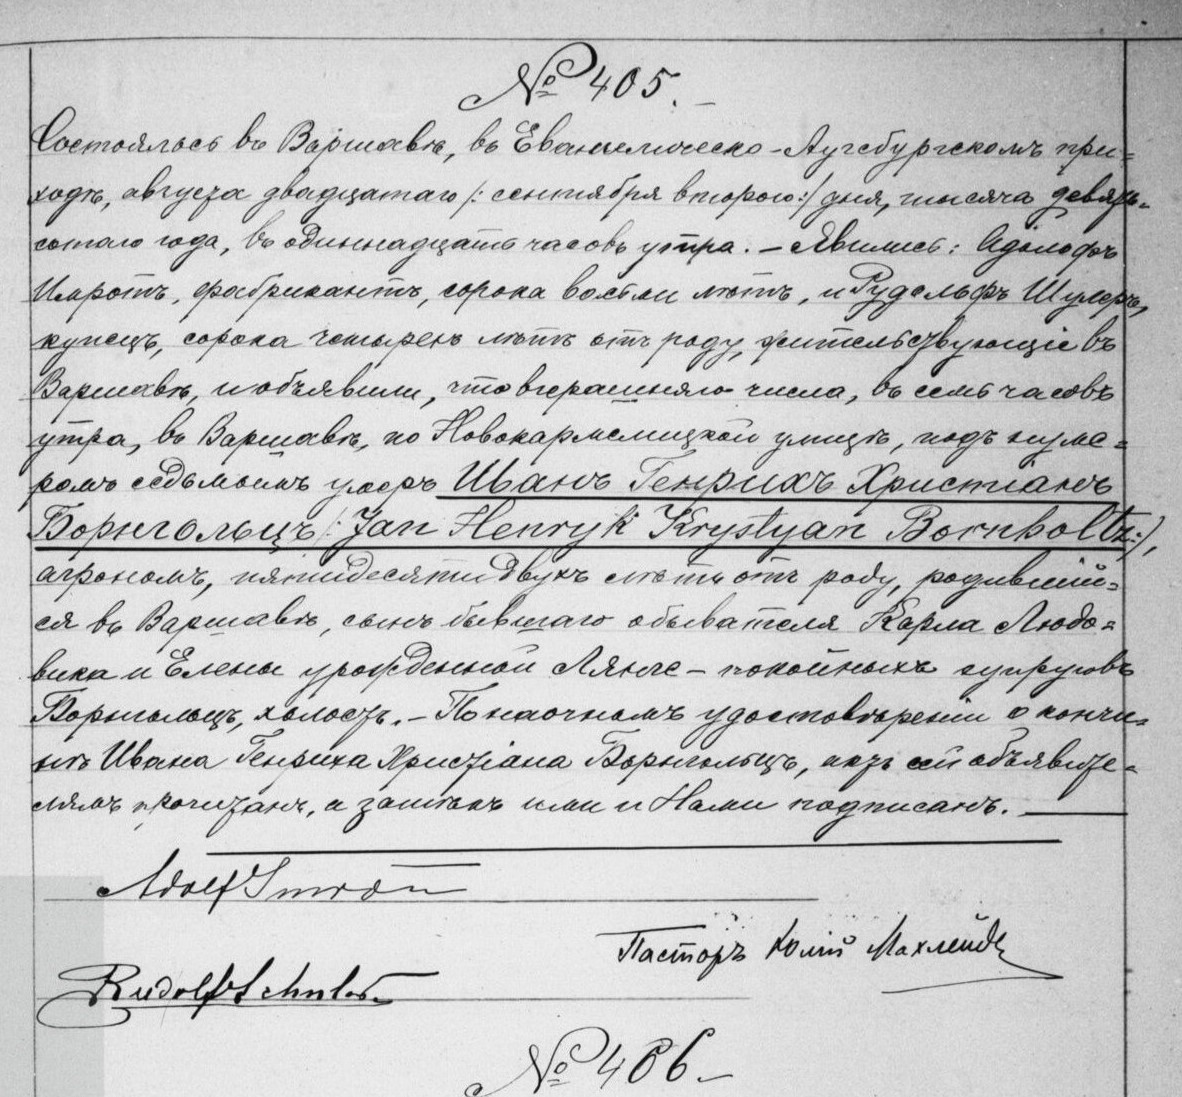 № 405.
Состоялось въ Варшавѣ, въ Евангелическо-Аугсбургскомъ при=
ходѣ, августа двадцатаго /: сентября второго :/ дня, тысяча девять=
сотаго года, въ одиннадцать часовъ утра. – Явились: Адольфъ
фабрикантъ, сорока восьми лѣтъ, и Рудольфъ Шулеръ,
купецъ, сорока четырехъ лѣтъ отъ роду, жительствующіе въ
Варшавѣ, и объявили, что вчерашняго числа, въ семь часовъ
утра, въ Варшавѣ, по Новокармелицкой улицѣ, подъ нуме=
ромъ седьмымъ умеръ Иванъ Генрихъ Христіанъ
Борнгольцъ /: Jan Henryk Krystyan Bornholtz :/,
агрономъ, пятидесяти двухъ лѣтъ отъ роду, родившій=
ся въ Варшавѣ, сынъ бывшаго обывателя Карла Людо=
вика и Елены урожденной Лянге – покойныхъ супруговъ
Борнгольцъ, холостъ. – По наочномъ удостовѣреніи о кончи=
нѣ Ивана Генриха Христіана Борнгольцъ, актъ сей объявите=
лямъ прочитанъ, а затѣмъ ими и Нами подписанъ.
Adolf
Пасторъ Юлій Махлейдъ
Rudolf Schuler
№ 406.